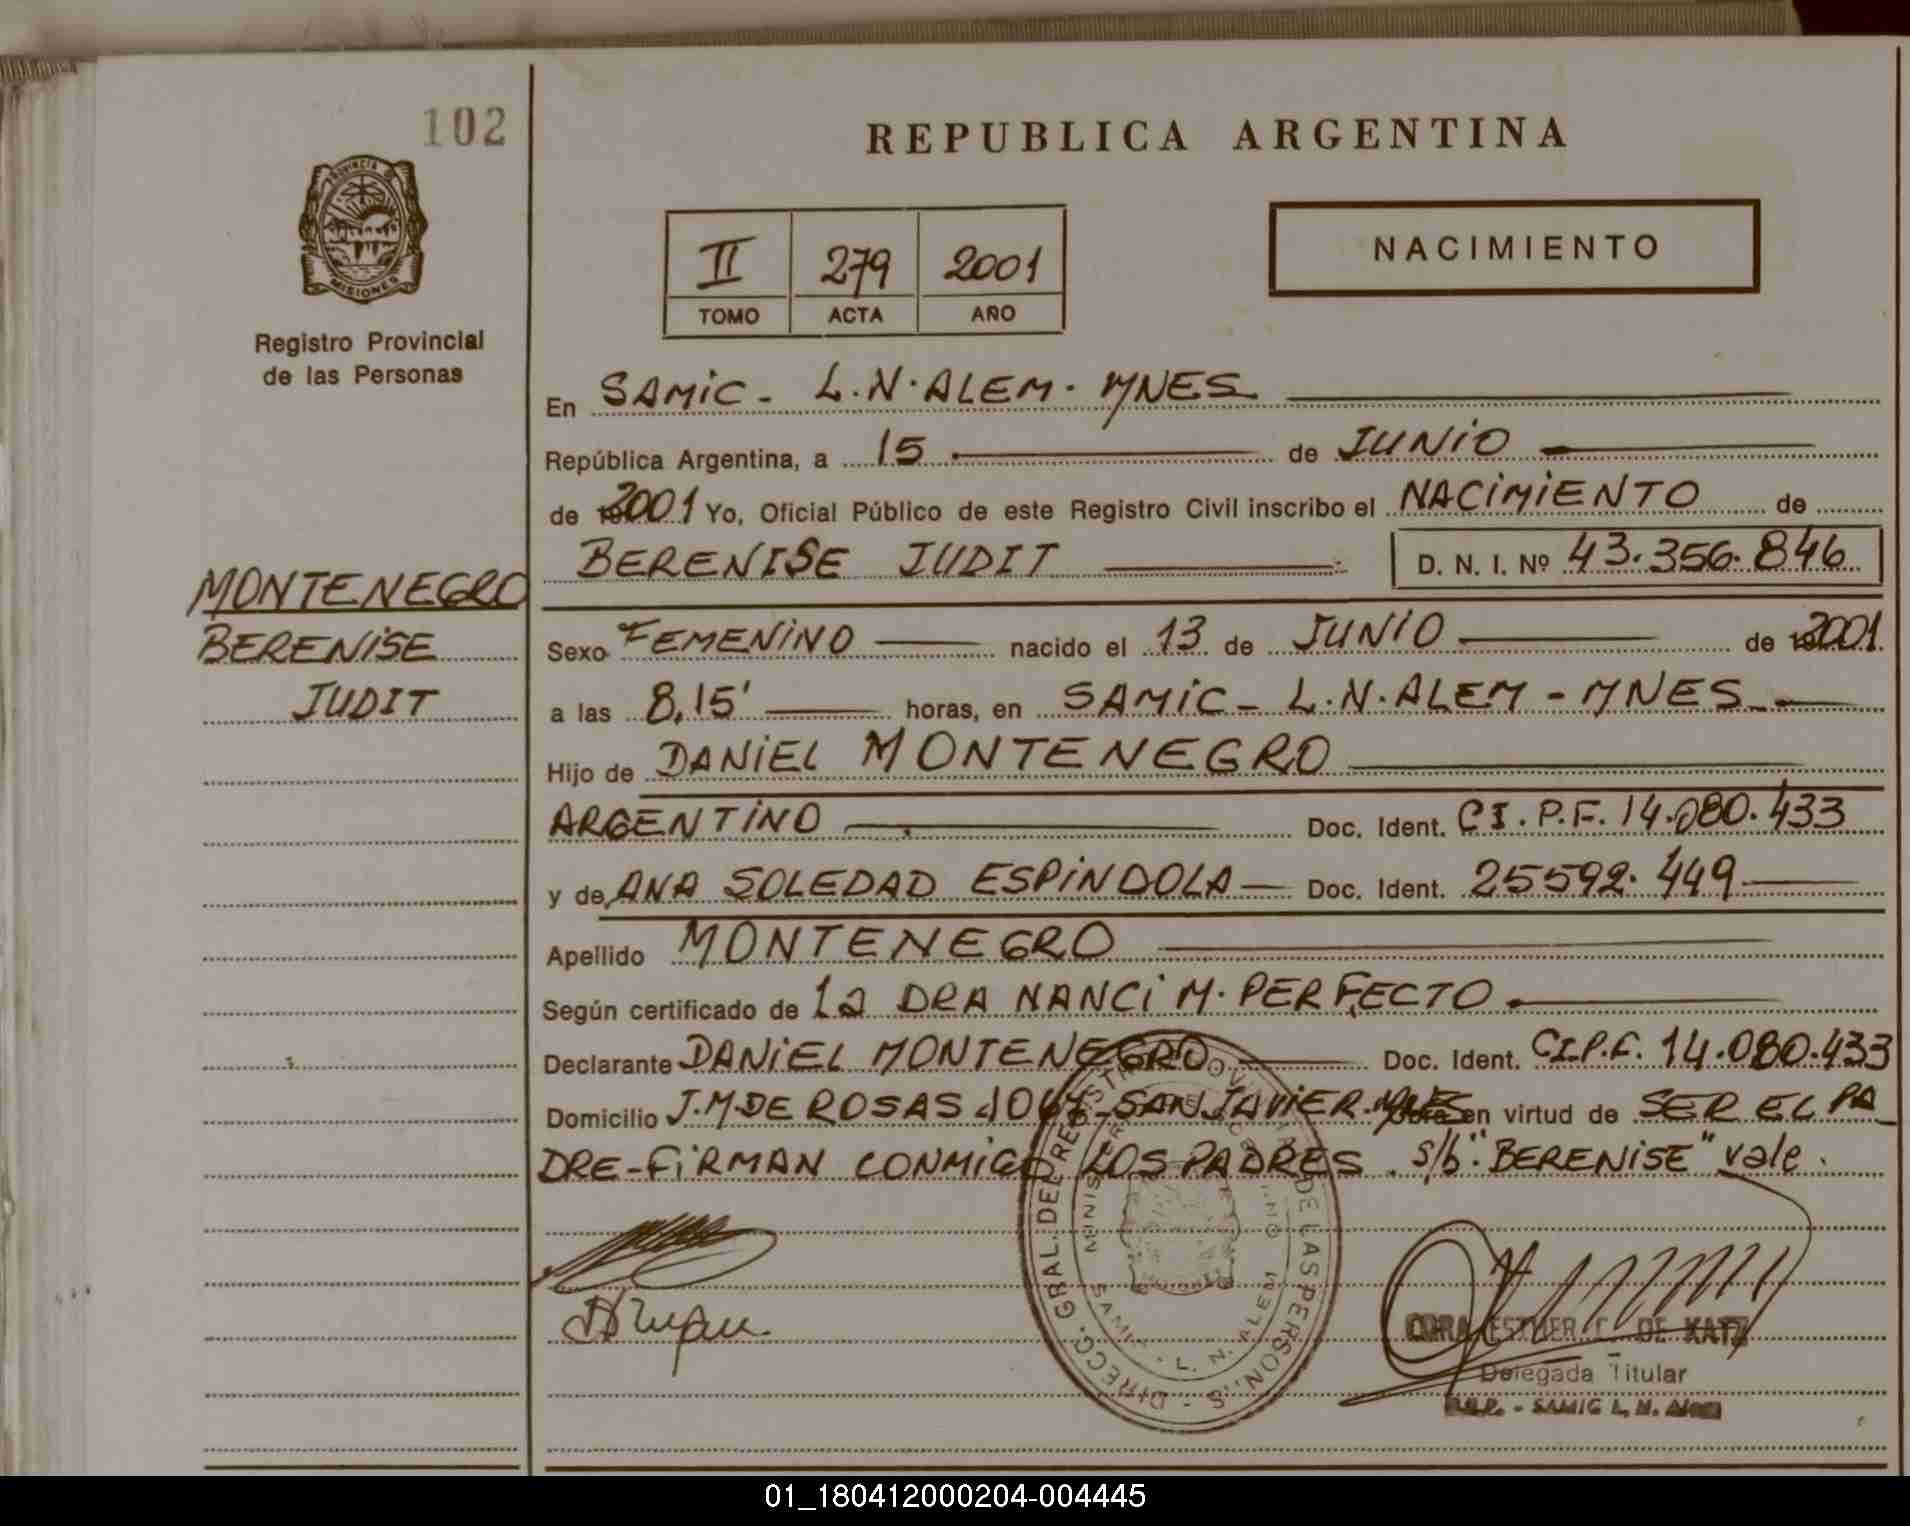 102
REPUBLICA ARGENTINA
PROVINCIA DE
MISIONES
Registro Provincial
de las Personas
II 279 2001
TOMO ACTA AÑO
NACIMIENTO
En SAMIC - L.N. ALEM - MNES
República Argentina, a 15 de JUNIO
de 2001 Yo, Oficial Público de este Registro Civil inscribo el NACIMIENTO de
BERENISE JUDIT D. N. I. Nº 43.356.846
MONTENEGRO
BERENISE
JUDIT
Sexo FEMENINO nacido el 13 de JUNIO de 2001.
a las 8,15' horas, en SAMIC - L.N. ALEM - MNES
Hijo de DANIEL MONTENEGRO
ARGENTINO Doc. Ident. CI.P.F. 14.080.433
y de ANA SOLEDAD ESPINDOLA Doc. Ident. 25592.449
Apellido MONTENEGRO
Según certificado de la DRA NANCI M. PERFECTO
Declarante DANIEL MONTENEGRO Doc. Ident. CI.P.F. 14.080.433
Domicilio J.M DE ROSAS 1067 - SAN JAVIER. MNES en virtud de SER EL PA_
DRE - FIRMAN CONMIGO LOS PADRES. s/b: "BERENISE" vale.
DIRECC. GRAL. DEL REGISTRO PROVINCIAL DE LAS PERSONAS
SAMIC - L. N. ALEM
CORA ESTHER C. DE KATZ
Delegada Titular
R.P.P. - SAMIC L. N. Alem
01_180412000204-004445